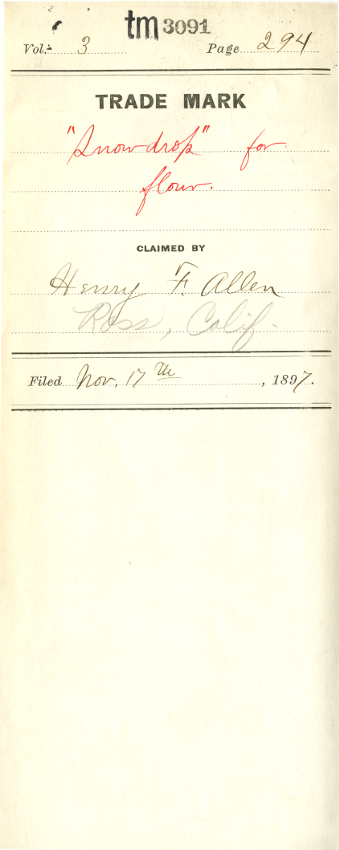 tm 3091
Vol. 3 Page 294
TRADE MARK
"Snowdrop" for
flour.
CLAIMED BY
Henry F. Allen
Ross, Calif.
Filed Nov. 17th, 1897.